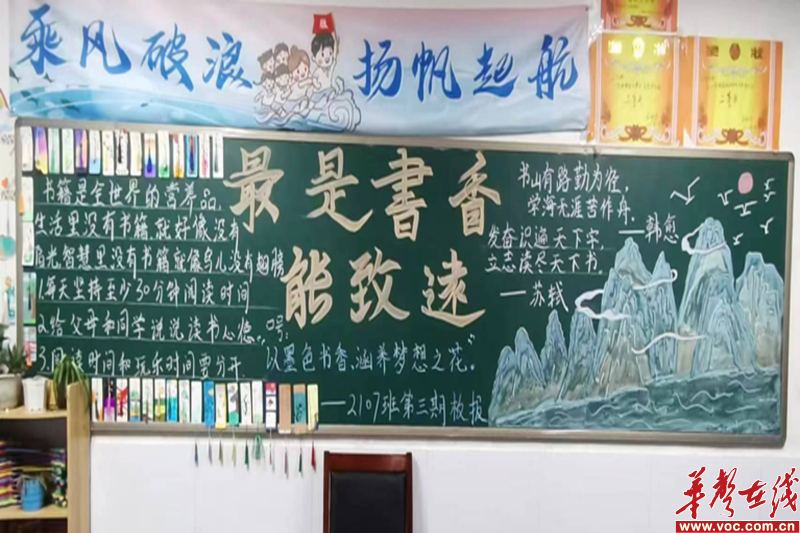 乘风破浪 扬帆起航
最是書香
能致遠
书籍是全世界的营养品,
生活里没有书籍,就好像没有
阳光,智慧里没有书籍,就像鸟儿没有翅膀
1.每天坚持至少30分钟阅读时间
2.给父母和同学说说读书心得
3.阅读时间和玩乐时间要分开
口号:
“以墨色书香,涵养梦想之花。”
——2107班第三期板报
书山有路勤为径,
学海无涯苦作舟。
——韩愈
发奋识遍天下字,
立志读尽天下书。
——苏轼
華聲在线
www.voc.com.cn